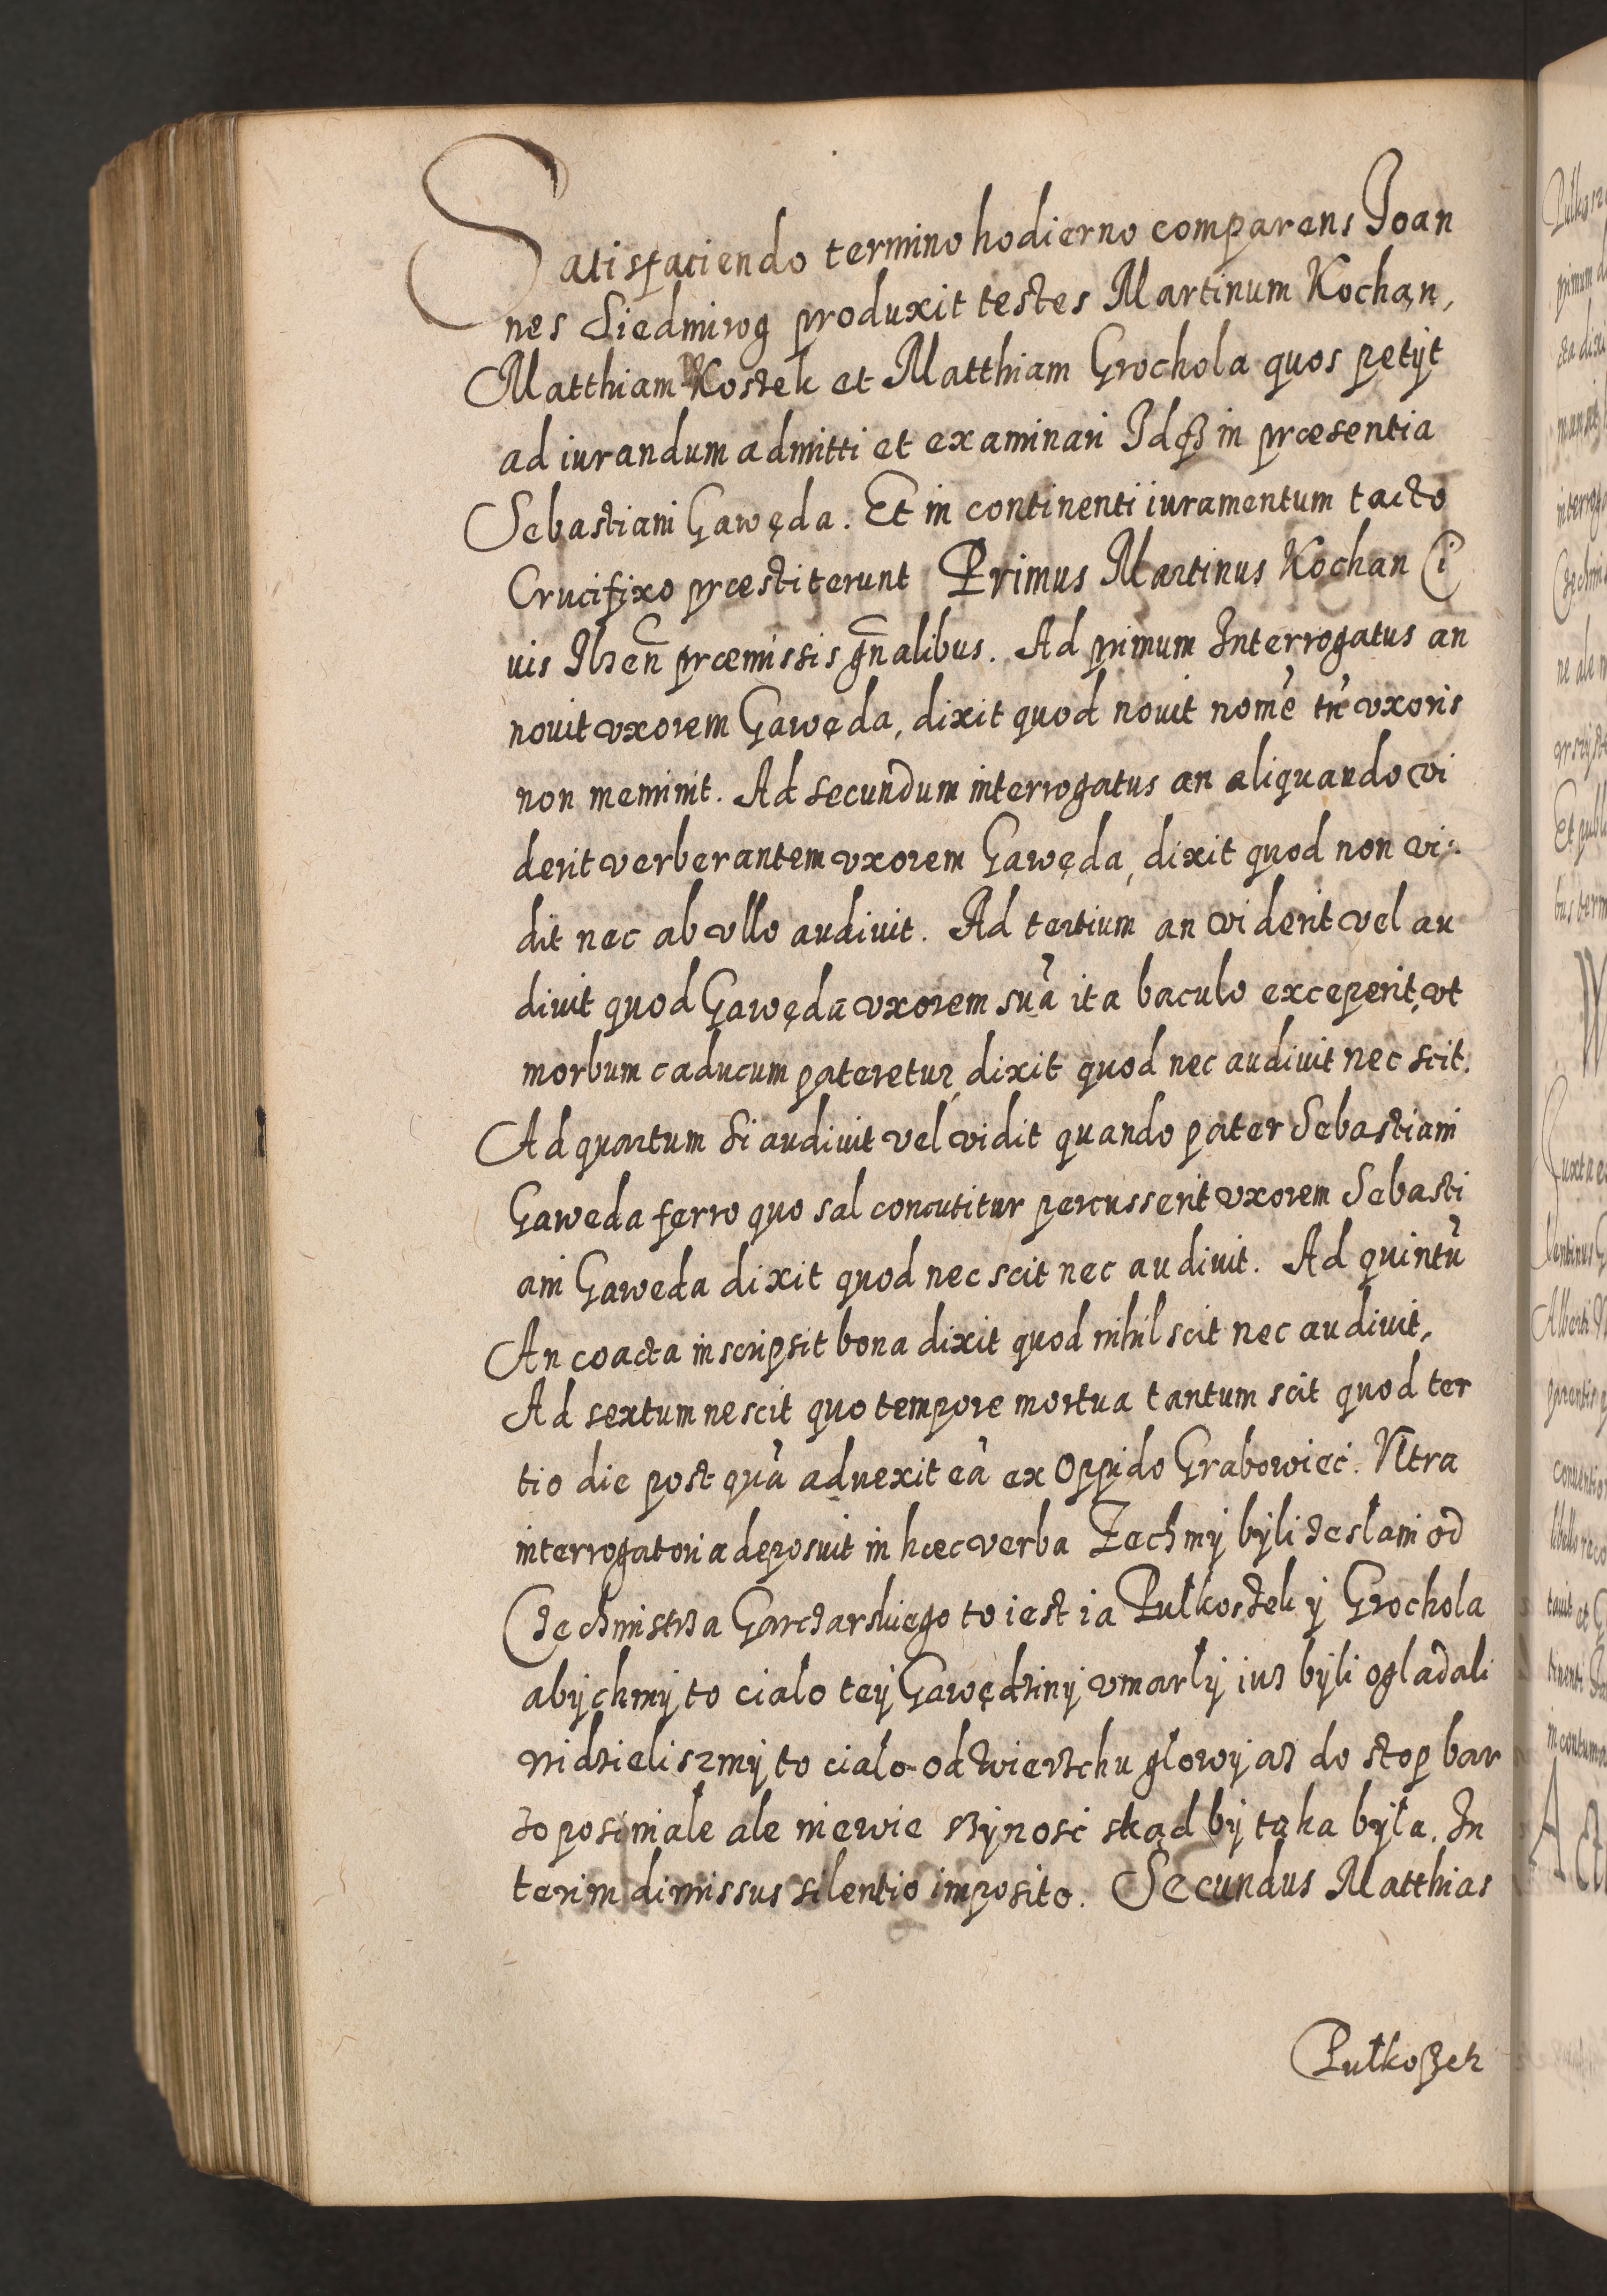 Satisfaciendo termino hodierno comparens Joan
nes Siedmirog produxit testes Martinum Kochan,
Matthiam Kostek et Matthiam Grochola quos petÿt
ad iurandum admitti et examinari Idqß in præsentia
Sebastiani Gawęda. Et in continenti iuramentum tacto
Crucifixo præstiterunt Primus Martinus Kochan Ci
uis Ilzen̄ præmissis gn̄alibus. Ad primum Interrogatus an
nouit vxorem Gawęda, dixit quod nouit nomē tn̄ vxoris
non meminit. Ad secundum interrogatus an aliquando vi
derit verberantem vxorem Gawęda, dixit quod non vi:
dit nec ab vllo audiuit. Ad tertium an viderit vel au
diuit quod Gawęda vxorem suā ita baculo exceperit, vt
morbum caducum pateretur, dixit quod nec audiuit nec scit.
Ad quartum Si audiuit vel vidit quando pater Sebastiani
Gaweda ferro quo sal concutitur percusserit vxorem Sebasti
ani Gaweda dixit quod nec scit nec audiuit. Ad quintū
An coacta inscripsit bona dixit quod nihil scit nec audiuit,
Ad sextum nescit quo tempore mortua tantum scit quod ter
tio die post quā aduexit eā ex Oppido Grabowiec. Vltra
interrogatoria deposuit in hæc verba Zechmÿ bÿli zeslani od
Cechmistrza Garczarskiego to iest ia Pułkoszek ÿ Grochola
abÿchmÿ to cialo teÿ Gawędzinÿ vmarlÿ iuz bÿli ogladali
widzieliszmÿ to cialo od wierzchu glowÿ az do stop bar
zo posiniale ale niewie sinosc skąd bÿ taka bÿła. In
terim dimissus silentio imposito. Secundus Matthias
Pułkoszek